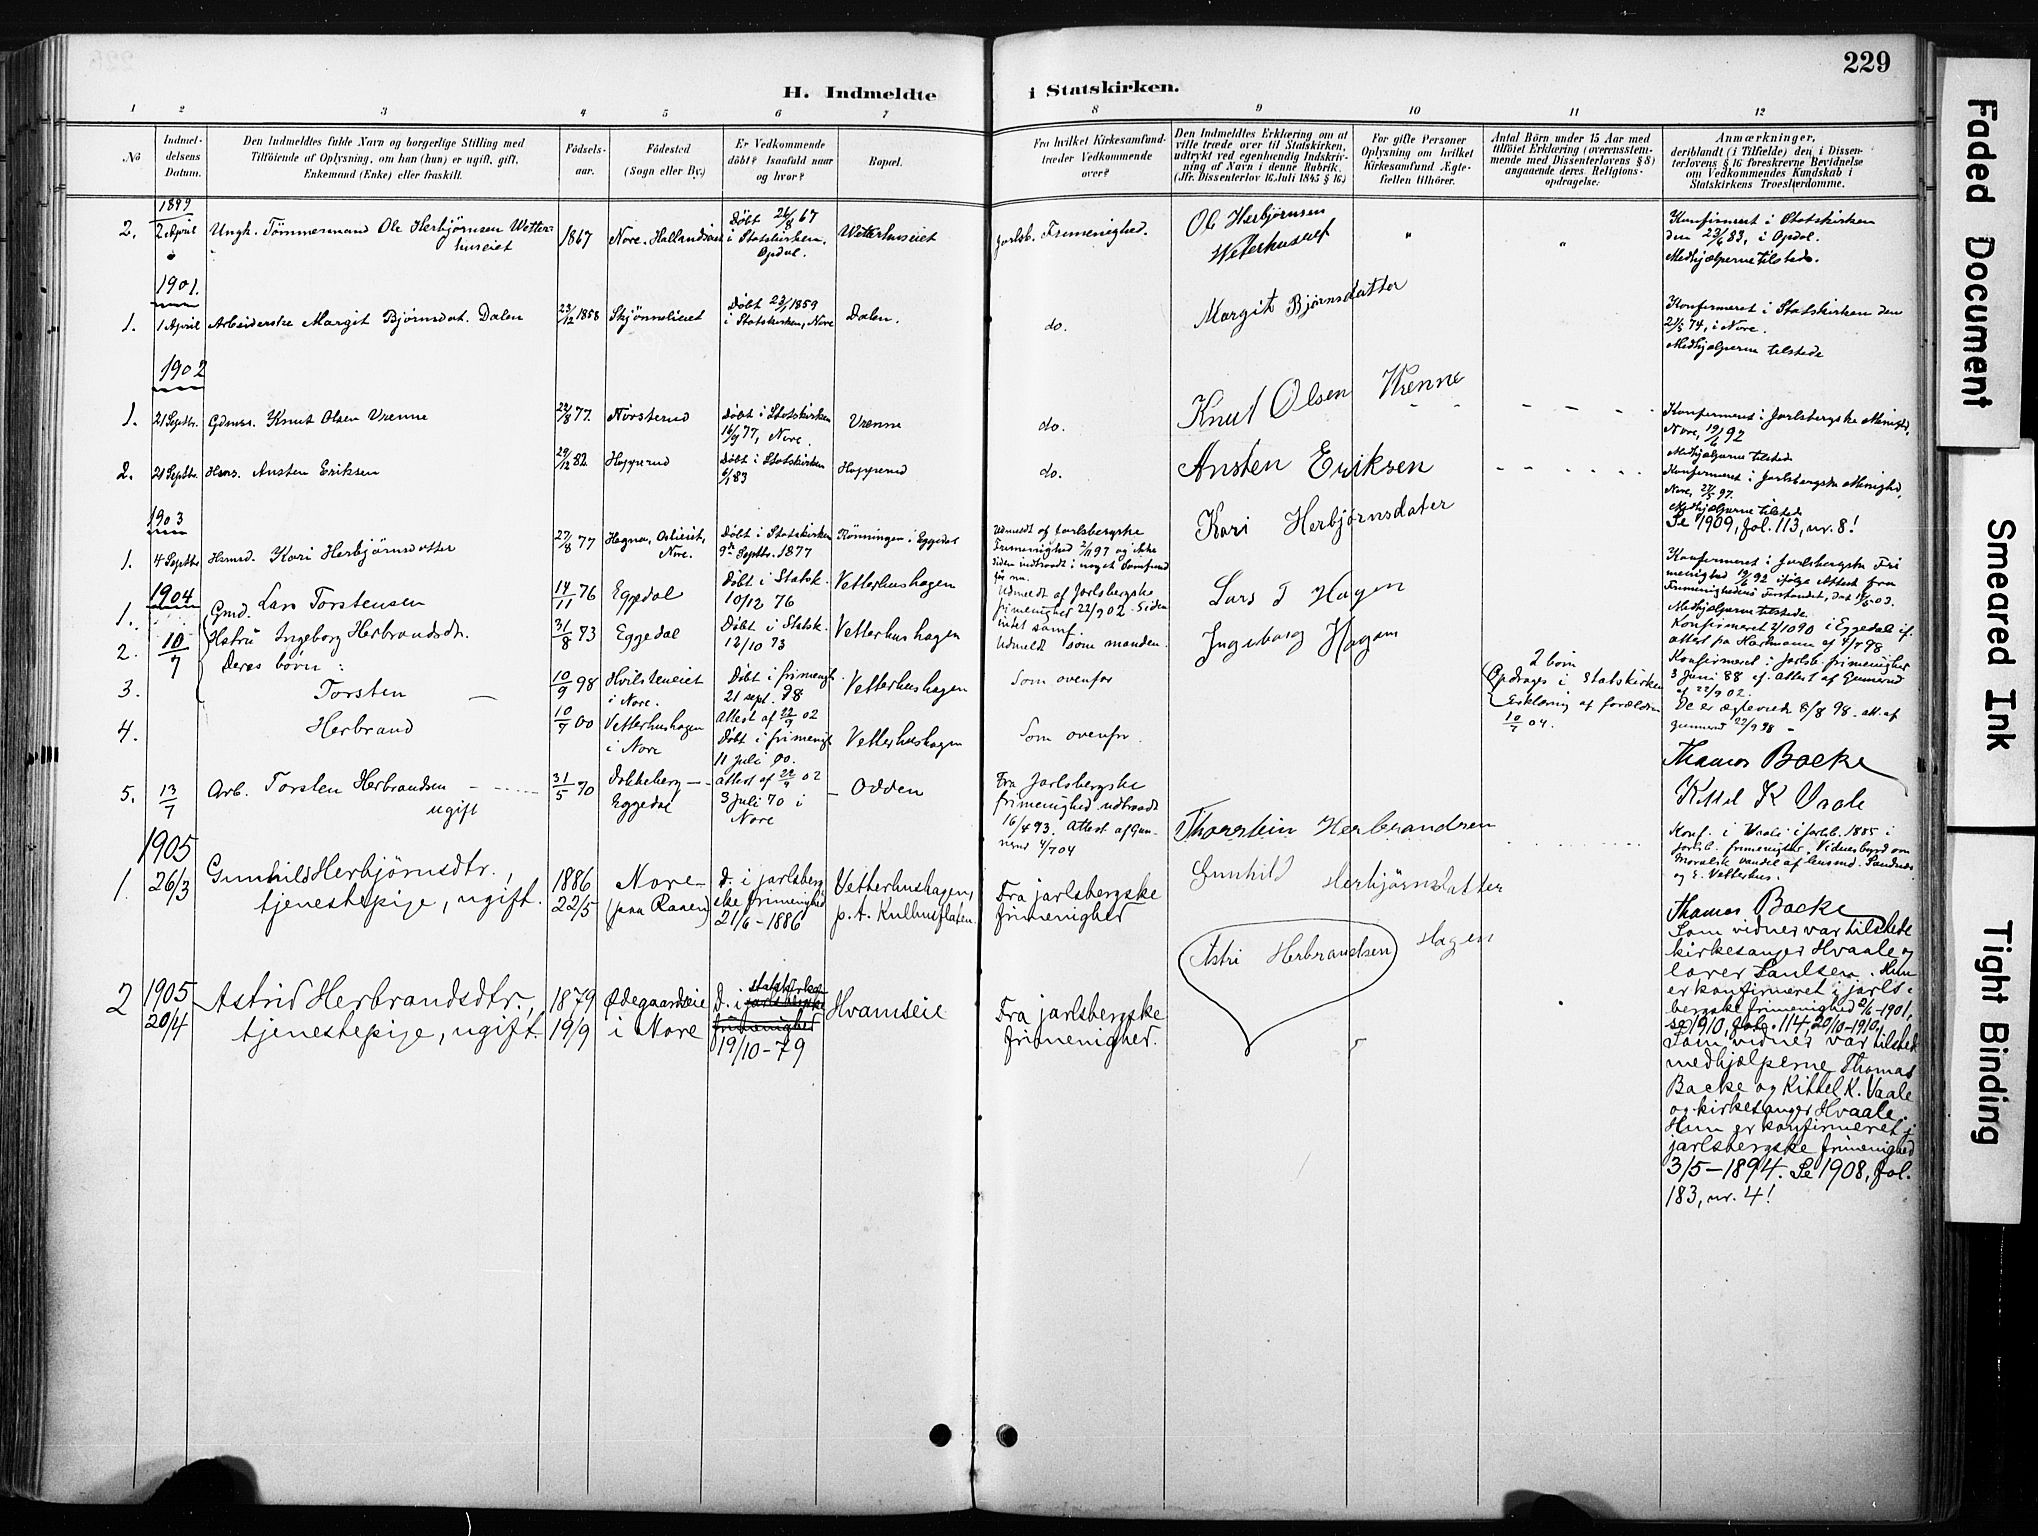 229
H. Indmeldte i Statskirken.
1 2 3 4 5 6 7 8 9 10 11 12
No
Indmel-
delsens
Datum.
Den Indmeldtes fulde Navn og borgerlige Stilling med
Tilföiende af Oplysning, om han (hun) er ugift, gift,
Enkemand (Enke) eller fraskilt.
Födsels-
aar.
Födested
(Sogn eller By.)
Er Vedkommende
döbt? Isaafald naar
og hvor?
Bopæl.
Fra hvilket Kirkesamfund
træder Vedkommende
over?
Den Indmeldtes Erklæring om at
ville træde over til Statskirken,
udtrykt ved egenhændig Indskriv-
ning af Navn i denne Rubrik.
(Jfr. Dissenterlov 16 Juli 1845 § 16)
For gifte Personer
Oplysning om hvilket
Kirkesamfund Ægte-
fællen tilhører.
Antal Börn under 15 Aar med
tilföiet Erklæring (overensstem-
mende med Dissenterlovens § 8)
angaaende deres Religions-
opdragelse.
Anmærkninger,
deriblandt (i Tilfælde) den i Dissen-
terlovens § 16 foreskrevne Bevidnelse
om Vedkommendes Kundskab i
Statskirkens Troeslærdomme.
1899
2. 2 April Ungk. Tömmermand Ole Herbjörnsen Wetter-
huseiet
1867 Nore. Hallandseie
Döbt 26/8 67
i Statskirken,
Opdal.
Wetterhuseiet
Jarlsb. Frimenighed.
Ole Herbjørnsen
Weterhuseiet
" "
Konfirmeret i Statskirken
den 23/6 83, i Opdal.
Medhjælperne tilstede.
1901.
1. 1 April Arbeiderske Margit Bjørnsdat. Dalen
23/12 1858 Skjönneleiet
Döbt 23/1 1859
i Statskirken, Nore
Dalen.
do.
Margit Bjørnsdatter
Konfirmeret i Statskirken den
21/6 74, i Nore.
Medhjælperne tilstede
1902
1. 21 Septbr. Gdmsr. Knut Olsen Vrenne
22/8 77. Norsterud
Döbt i Statskirken
16/9 77, Nore.
Vrenne
do.
Knut Olsen Vrenne
Konfirmeret i Jarlsbergske Menighd,
Nore, 19/6 92
Medhjælperne tilstede
2. 21 Septbr. Hms. Ansten Eriksen
29/12 82 Hopperud
Döbt i Statskirken
6/1 83
Hopperud
do.
Ansten Eriksen
Konfirmeret i Jarlsbergske Menighd,
Nore, 27/5 97.
Medhjælperne tilstede
Se 1909, fol. 113, nr. 8!
1903
1. 4 Septbr Hsmd. Kari Herbjörnsdatter
27/8 77 Hagna, Oslieiet,
Nore.
Döbt i Statskirken
9de Septbr. 1877
Rönningen i Eggedal
Udmeldt af Jarlsbergske
Frimenighed 2/11 97 og ikke
siden indtraadt i noget Samfund
för nu.
Kari Herbjørnsdater
Konfirmeret i Jarlsbergske Fri
menighed 19/6 92 ifölge Attest fra
Frimenighedens Forstander, dat
Medhjælperne tilstede.
1904
1. Gmd. Lars Torstensen
14/11 76 Eggedal
Döbt i Statsk.
10/12 76
Vetterhushagen
Udmeldt af Jarlsbergske
frimenighet 22/9 02. Siden
intet samf.
Lars T Hagen
Konfirmeret 2/10 90 i Eggedal if.
attest fra Hartmann af 4/7 98
2. 10/7 Hstru Ingeborg Herbrandsdr.
31/8 73 Eggedal
Döbt i Statsk.
12/10 73
Vetterhushagen
Udmeldt som manden.
Ingeborg Hagen
Konfirmeret i Jarlsb. frimenighet
3 Juni 88 ef. Attest af Gunnerud
af 22/9 02.
Deres børn:
3. Torsten
10/9 98 Hvilsteneiet
i Nore.
Döbt i frimenigh.
21 sept. 98
Attest af 22/9 02
Vetterhushagen
Som ovenfor
2 børn
Opdrages i Statskirken
Erklæring af forældrene
10/7 04.
De er ægteviede 8/8 98. att. af
Gunnerud 22/9 98
4. Herbrand
10/7 00 Vetterhushagen
i Nore
Döbt i frimenigh
11 juli 00.
attest af 22/9 02
Vetterhushagen
Som ovenfor.
Thomas Backe
Kittel K Vaale
5. 13/7 Arb. Torsten Herbrandsen
ugift
31/5 70 Dokkeberg
Eggedal
3 juli 70 i
Nore
Odden
Fra Jarlsbergske
frimenighed udtraadt
16/4 93. Attest af Gun-
nerud 4/7 04
Thorstein Herbrandsen
Konf. i Jarlsb. 1885 i
Jarlsb. frimenighet. Vidnesbyrd om
Moralsk vandel af
og E. Vetterhus.
Thomas Backe
1905
1. 26/3 Gunhild Herbjörnsdtr.,
tjenestepige, ugift.
1886
22/5
Nore
(paa Raaen)
D. i jarlsberg-
ske frimenighed
21/6-1886
Vetterhushagen,
p.t. Kulhusflaten
Fra jarlsbergske
frimenighed
Gunhild Herbjørnsdatter
Som vidner var tilstede
kirkesanger Hvaale og
lærer Paulsen. Hun
er konfirmeret i jarls-
bergske frimenighed 2/6-1901,
se 1910, fol. 114, 20/10-1910.
2 1905
20/4
Astrid Herbrandsdtr,
tjenestepige, ugift.
1879
19/9
Ödegaardseie
i Nore
D. i statskirken
jarlsbergske
frimenighed
19/10-79
Hvamseie
Fra jarlsbergske
frimenighed.
Astri Herbrandsen Hagen
Som vidner var tilstede
medhjælperne Thomas
Backe og Kittel K. Vaale
og kirkesanger Hvaale.
Hun er konfirmeret i
jarlsbergske frimenighed
3/5-1894. Se 1908, fol.
183, nr. 4!
Faded Document
Smeared Ink
Tight Binding